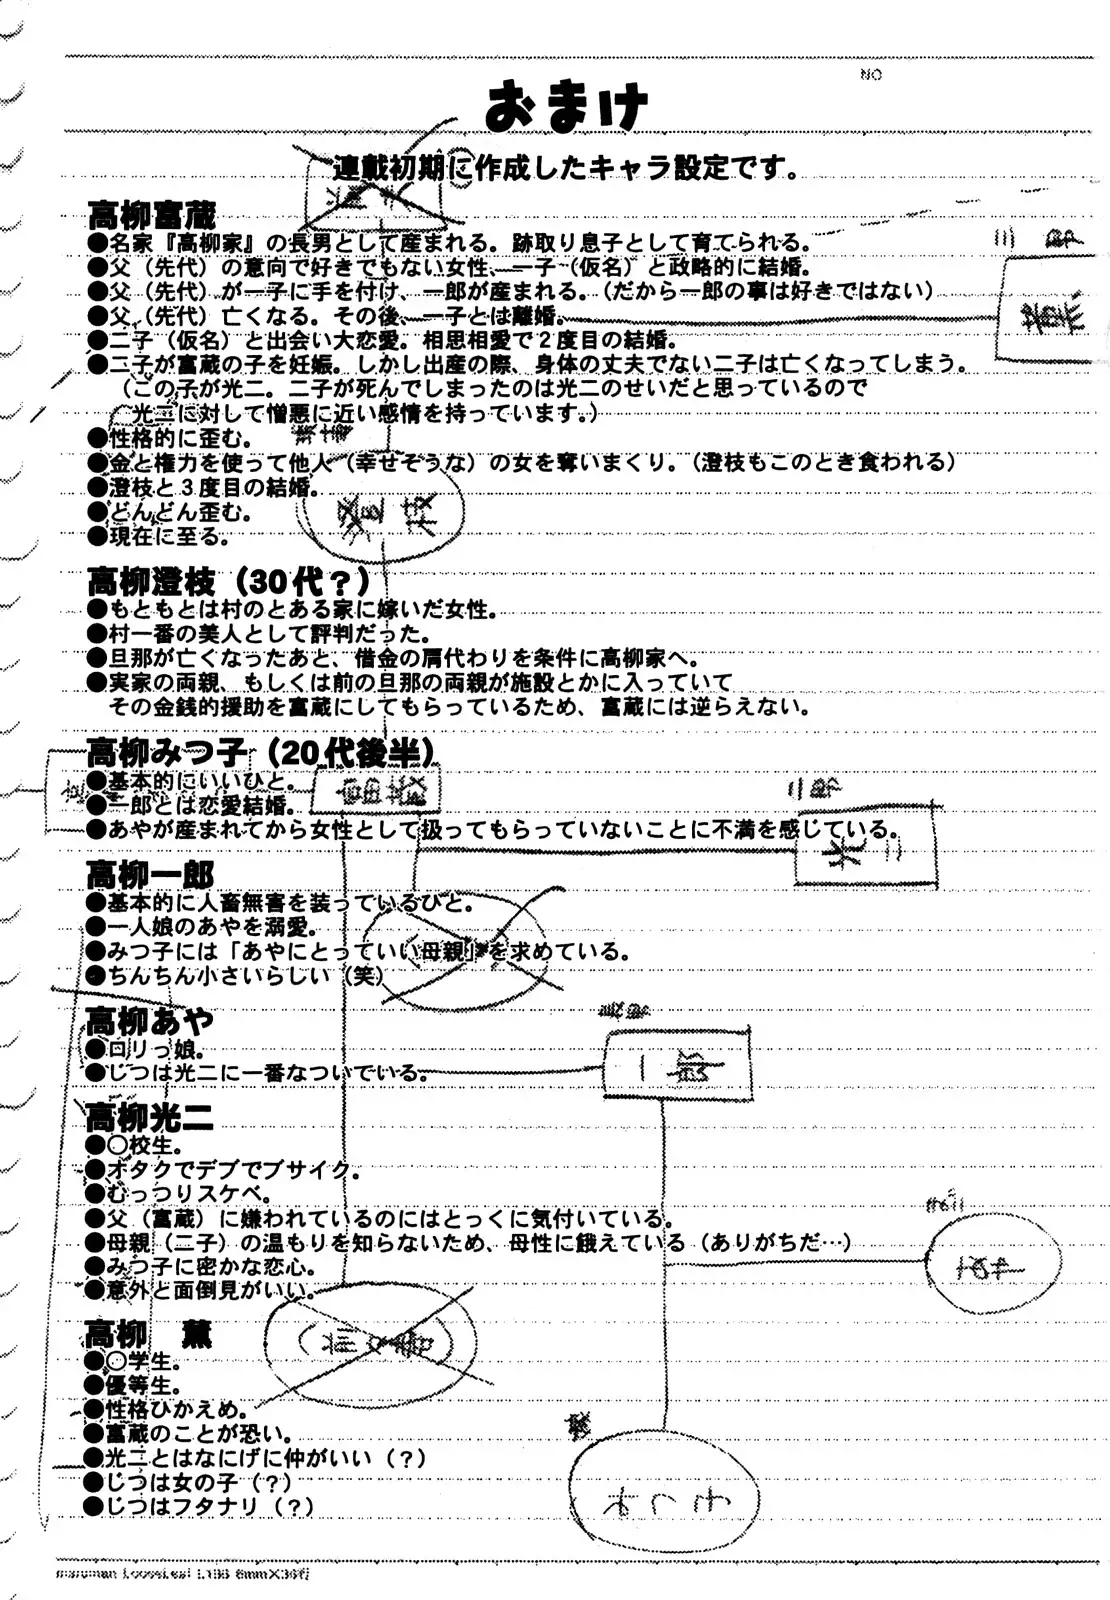 NO
おまけ
連載初期に作成したキャラ設定です。
高柳富蔵
●名家『高柳家』の長男として産まれる。跡取り息子として育てられる。
●父（先代）の意向で好きでもない女性、一子（仮名）と政略的に結婚。
●父（先代）が一子に手を付け、一郎が産まれる。（だから一郎の事は好きではない）
●父（先代）亡くなる。その後、一子とは離婚。
●二子（仮名）と出会い大恋愛。相思相愛で２度目の結婚。
●二子が富蔵の子を妊娠。しかし出産の際、身体の丈夫でない二子は亡くなってしまう。
（この子が光二。二子が死んでしまったのは光二のせいだと思っているので
光二に対して憎悪に近い感情を持っています。）
●性格的に歪む。
●金と権力を使って他人（幸せそうな）の女を奪いまくり。（澄枝もこのとき食われる）
●澄枝と３度目の結婚。
●どんどん歪む。
●現在に至る。
高柳澄枝（30代？）
●もともとは村のとある家に嫁いだ女性。
●村一番の美人として評判だった。
●旦那が亡くなったあと、借金の肩代わりを条件に高柳家へ。
●実家の両親、もしくは前の旦那の両親が施設とかに入っていて
その金銭的援助を富蔵にしてもらっているため、富蔵には逆らえない。
高柳みつ子（20代後半）
●基本的にいいひと。
●一郎とは恋愛結婚。
●あやが産まれてから女性として扱ってもらっていないことに不満を感じている。
光二
高柳一郎
●基本的に人畜無害を装っているひと。
●一人娘のあやを溺愛。
●みつ子には「あやにとっていい母親」を求めている。
●ちんちん小さいらしい（笑）
高柳あや
●ロリっ娘。
●じつは光二に一番なついでいる。
一郎
高柳光二
●○校生。
●オタクでデブでブサイク。
●むっつりスケベ。
●父（富蔵）に嫌われているのにはとっくに気付いている。
●母親（二子）の温もりを知らないため、母性に餓えている（ありがちだ…）
●みつ子に密かな恋心。
●意外と面倒見がいい。
高柳　薫
●○学生。
●優等生。
●性格ひかえめ。
●富蔵のことが恐い。
●光二とはなにげに仲がいい（？）
●じつは女の子（？）
●じつはフタナリ（？）
maruman LooseLeaf L1